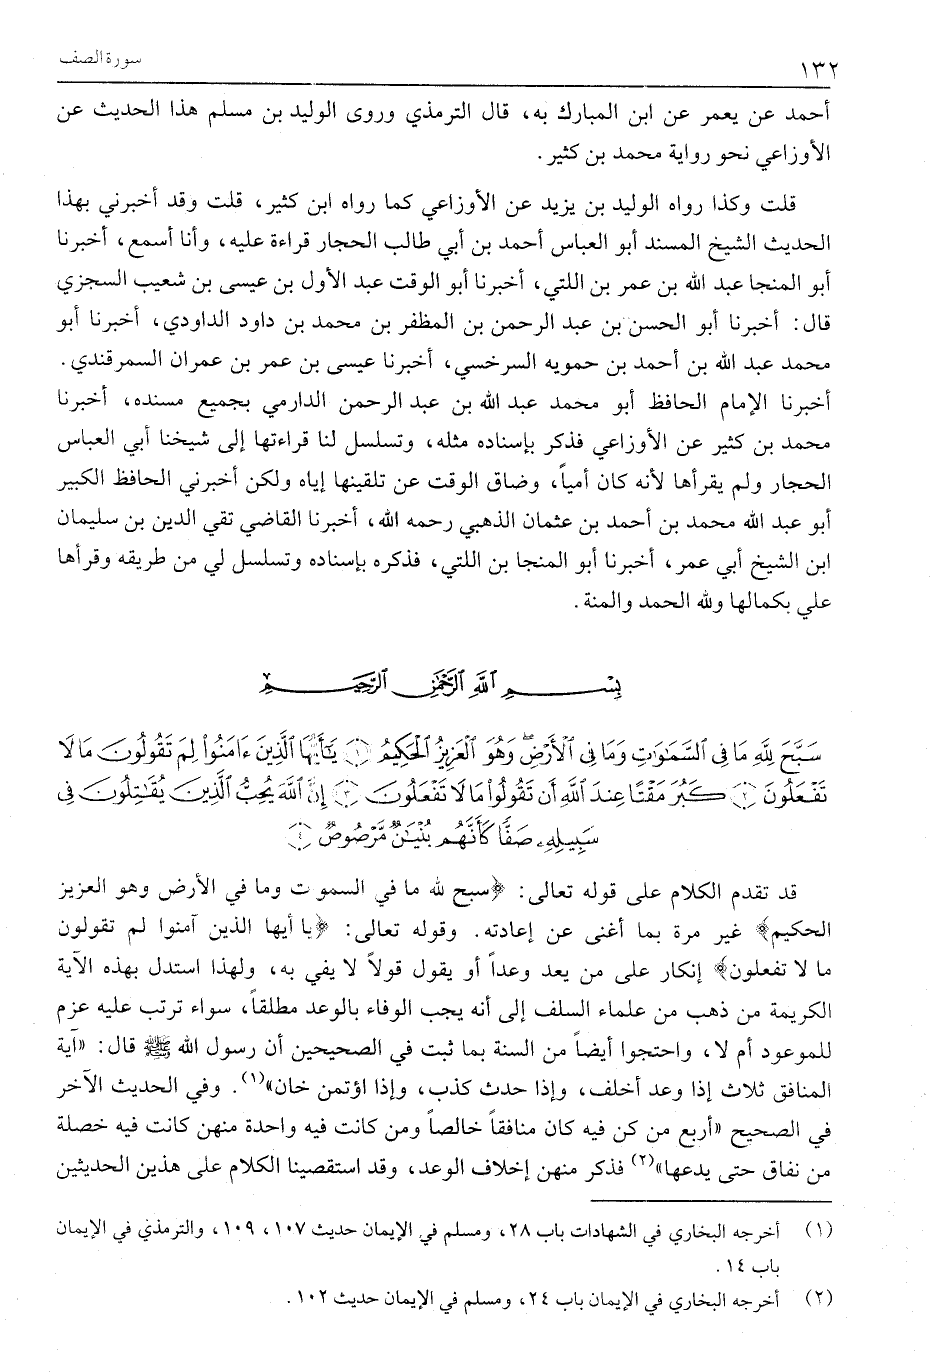 ١٣٢
سورة الصف
أحمد عن يعمر عن ابن المبارك به، قال الترمذي وروى الوليد بن مسلم هذا الحديث عن
الأوزاعي نحو رواية محمد بن كثير.
قلت وكذا رواه الوليد بن يزيد عن الأوزاعي كما رواه ابن كثير، قلت وقد أخبرني بهذا
الحديث الشيخ المسند أبو العباس أحمد بن أبي طالب الحجار قراءة عليه، وأنا أسمع، أخبرنا
أبو المنجا عبد الله بن عمر بن اللتي، أخبرنا أبو الوقت عبد الأول بن عيسى بن شعيب السجزي
قال: أخبرنا أبو الحسن بن عبد الرحمن بن المظفر بن محمد بن داود الداودي، أخبرنا أبو
محمد عبد الله بن أحمد بن حمويه السرخسي، أخبرنا عيسى بن عمر بن عمران السمرقندي.
أخبرنا الإمام الحافظ أبو محمد عبد الله بن عبد الرحمن الدارمي بجميع مسنده، أخبرنا
محمد بن كثير عن الأوزاعي فذكر بإسناده مثله، وتسلسل لنا قراءتها إلى شيخنا أبي العباس
الحجار ولم يقرأها لأنه كان أمياً، وضاق الوقت عن تلقينها إياه ولكن أخبرني الحافظ الكبير
أبو عبد الله محمد بن أحمد بن عثمان الذهبي رحمه الله، أخبرنا القاضي تقي الدين بن سليمان
ابن الشيخ أبي عمر، أخبرنا أبو المنجا بن اللتي، فذكره بإسناده وتسلسل لي من طريقه وقرأها
علي بكمالها ولله الحمد والمنة.
بِسْمِ ٱللَّهِ ٱلرَّحْمَٰنِ ٱلرَّحِيمِ
سَبَّحَ لِلَّهِ مَا فِي ٱلسَّمَٰوَٰتِ وَمَا فِي ٱلْأَرْضِ ۖ وَهُوَ ٱلْعَزِيزُ ٱلْحَكِيمُ ﴿١﴾ يَٰٓأَيُّهَا ٱلَّذِينَ ءَامَنُوا۟ لِمَ تَقُولُونَ مَا لَا
تَفْعَلُونَ ﴿٢﴾ كَبُرَ مَقْتًا عِندَ ٱللَّهِ أَن تَقُولُوا۟ مَا لَا تَفْعَلُونَ ﴿٣﴾ إِنَّ ٱللَّهَ يُحِبُّ ٱلَّذِينَ يُقَٰتِلُونَ فِي
سَبِيلِهِۦ صَفًّا كَأَنَّهُم بُنْيَٰنٌ مَّرْصُوصٌ ﴿٤﴾
قد تقدم الكلام على قوله تعالى: ﴿سبح لله ما في السموت وما في الأرض وهو العزيز
الحكيم﴾ غير مرة بما أغنى عن إعادته. وقوله تعالى: ﴿يا أيها الذين آمنوا لم تقولون
ما لا تفعلون﴾ إنكار على من يعد وعداً أو يقول قولاً لا يفي به، ولهذا استدل بهذه الآية
الكريمة من ذهب من علماء السلف إلى أنه يجب الوفاء بالوعد مطلقاً، سواء ترتب عليه عزم
للموعود أم لا، واحتجوا أيضاً من السنة بما ثبت في الصحيحين أن رسول الله ﷺ قال: «آية
المنافق ثلاث إذا وعد أخلف، وإذا حدث كذب، وإذا اؤتمن خان»(١). وفي الحديث الآخر
في الصحيح «أربع من كن فيه كان منافقاً خالصاً ومن كانت فيه واحدة منهن كانت فيه خصلة
من نفاق حتى يدعها»(٢) فذكر منهن إخلاف الوعد، وقد استقصينا الكلام على هذين الحديثين
(١) أخرجه البخاري في الشهادات باب ٢٨، ومسلم في الإيمان حديث ١٠٧، ١٠٩، والترمذي في الإيمان
باب ١٤.
(٢) أخرجه البخاري في الإيمان باب ٢٤، ومسلم في الإيمان حديث ١٠٢.